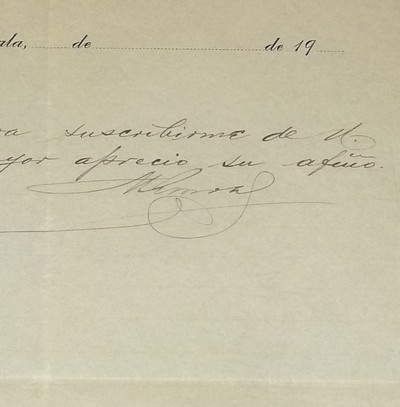 ala, de de 19
ra suscribirme de U.
yor aprecio su afmo.